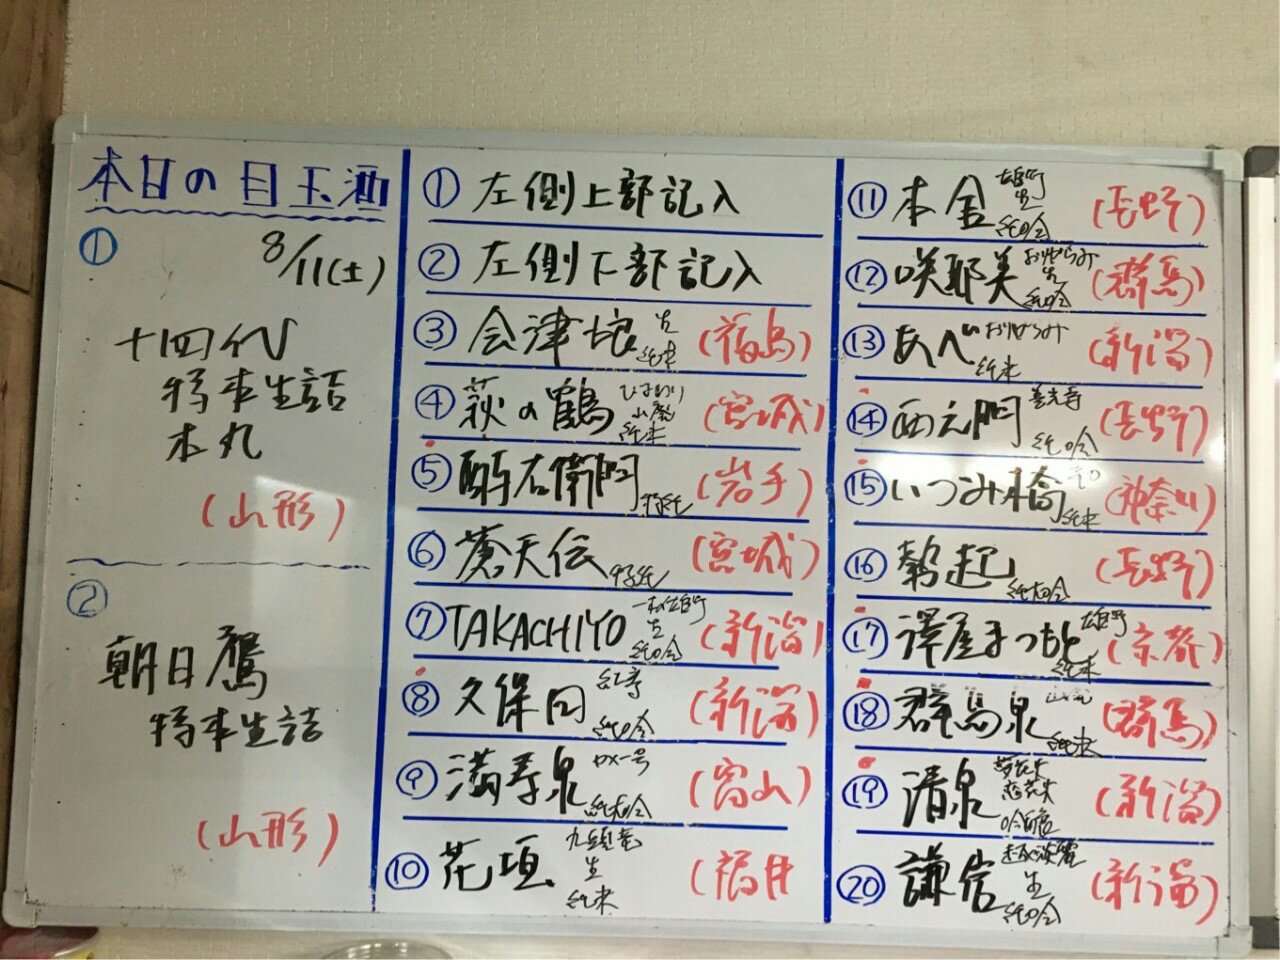 本日の目玉酒
①
8/11(土)
十四代
特本生詰
本丸
(山形)
②
朝日鷹
特本生詰
(山形)
① 左側上部記入
② 左側下部記入
③ 会津娘 生 純米 (福島)
④ 萩の鶴 ひまわり 山廃 純米 (宮城)
⑤ 酉与右衛門 特純 (岩手)
⑥ 蒼天伝 特純 (宮城)
⑦ TAKACHIYO 一本〆雄町 生 純吟 (新潟)
⑧ 久保田 紅寿 純吟 (新潟)
⑨ 満寿泉 DX一号 純大吟 (富山)
⑩ 花垣 九頭竜 生 純米 (福井
⑪ 本金 雄町 生 純吟 (長野)
⑫ 咲耶美 おりがらみ 生 純吟 (群馬)
⑬ あべ おりがらみ 純米 (新潟)
⑭ 西之門 善光寺 純吟 (長野)
⑮ いづみ橋 純米 (神奈川)
⑯ 勢起 純大吟 (長野)
⑰ 澤屋まつもと 雄町 純米 (京都)
⑱ 群馬泉 山廃 純米 (群馬)
⑲ 清泉 夢花火 恋花火 吟醸 (新潟)
⑳ 謙信 超淡麗 生 純吟 (新潟)